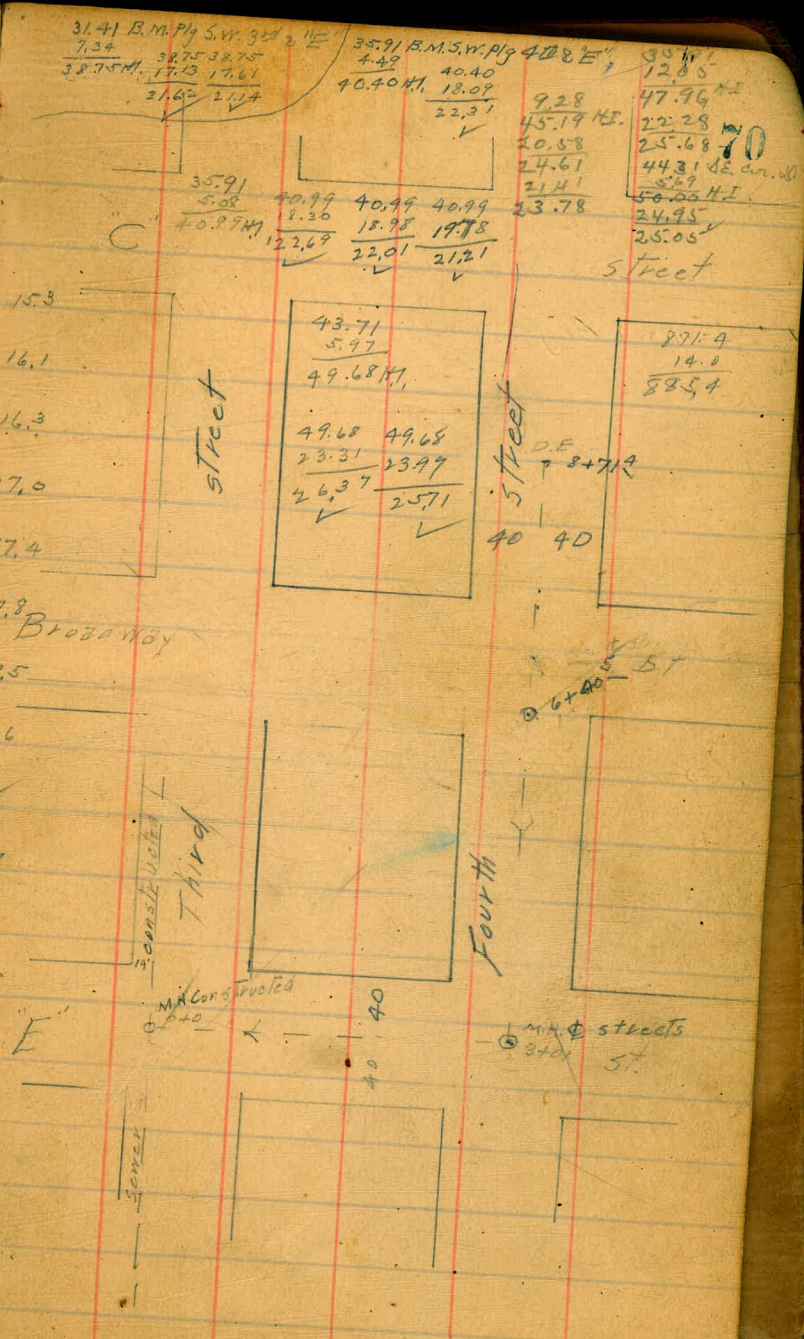 31.41 B.M. Plg S.W. 3rd & "E"
7.34
38.75 H.I.
38.75 38.75
17.13 17.61
21.62 21.14
35.91 B.M. S.W. Plg 4th & "E"
4.49
40.40 H.I.
40.40
18.09
22.31
9.28
45.19 H.I.
20.58
24.61
21.41
23.78
12.05
47.96 H.I.
22.28
25.68
44.31 S.E. Cor.
5.69
50.00 H.I.
24.95
25.05
70
35.91
5.08
40.99 H.I.
40.99 40.99 40.99
18.30 18.98 19.78
22.69 22.01 21.21
"C"
street
15.3
16.1
16.3
7.0
7.4
7.8
.5
6
43.71
5.97
49.68 H.I.
49.68 49.68
23.31 23.97
26.37 25.71
871.4
14.0
885.4
street
street
D.E.
8+71.4
40 40
Broadway
6+40.5
ST
constructed
Third
Fourth
19'
M.H. Constructed
0+0
"E"
40
40
M.H. ₵ streets
3+01
ST.
Sewer